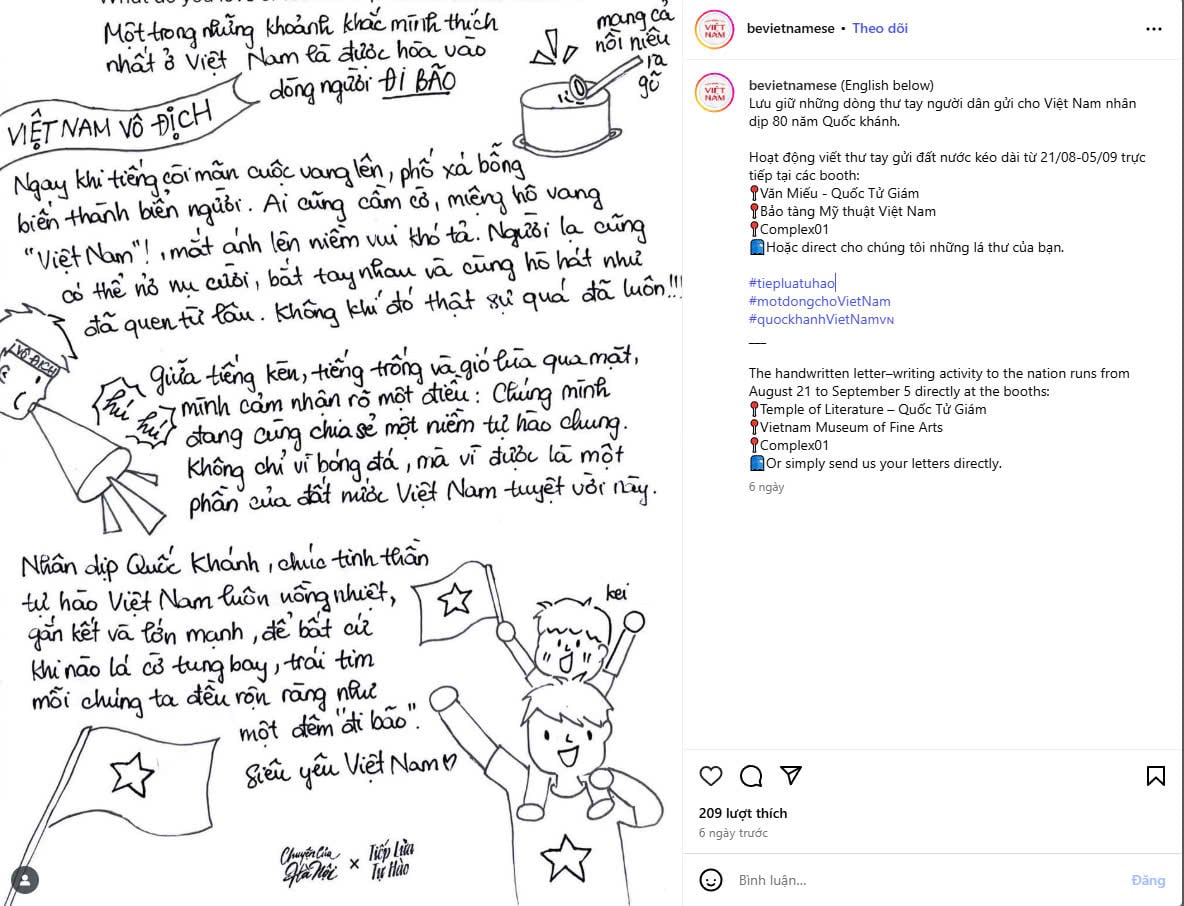 Một trong những khoảnh khắc mình thích
nhất ở Việt Nam là được hòa vào
dòng người ĐI BÃO
mang cả
nồi niêu
ra
gõ
VIỆT NAM VÔ ĐỊCH
Ngay khi tiếng còi mãn cuộc vang lên, phố xá bỗng
biến thành biển người. Ai cũng cầm cờ, miệng hô vang
"Việt Nam"!, mắt ánh lên niềm vui khó tả. Người lạ cũng
có thể nở nụ cười, bắt tay nhau và cùng hò hát như
đã quen từ lâu. Không khí đó thật sự quá đã luôn!!!
VÔ ĐỊCH
hú hú
Giữa tiếng kèn, tiếng trống và gió lùa qua mặt,
mình cảm nhận rõ một điều: Chúng mình
đang cùng chia sẻ một niềm tự hào chung.
Không chỉ vì bóng đá, mà vì được là một
phần của đất nước Việt Nam tuyệt vời này.
Nhân dịp Quốc Khánh, chúc tinh thần
tự hào Việt Nam luôn nồng nhiệt,
gắn kết và lớn mạnh, để bất cứ
khi nào lá cờ tung bay, trái tim
mỗi chúng ta đều rộn ràng như
một đêm "đi bão".
Siêu yêu Việt Nam♡
kei
Chuyện Của
Hà Nội
×
Tiếp Lửa
Tự Hào
VIỆT
NAM
bevietnamese • Theo dõi
VIỆT
NAM
bevietnamese (English below)
Lưu giữ những dòng thư tay người dân gửi cho Việt Nam nhân
dịp 80 năm Quốc khánh.
Hoạt động viết thư tay gửi đất nước kéo dài từ 21/08-05/09 trực
tiếp tại các booth:
📍Văn Miếu - Quốc Tử Giám
📍Bảo tàng Mỹ thuật Việt Nam
📍Complex01
Hoặc direct cho chúng tôi những lá thư của bạn.
#tiepluatuhao
#motdongchoVietNam
#quockhanhVietNamVN
__
The handwritten letter–writing activity to the nation runs from
August 21 to September 5 directly at the booths:
📍Temple of Literature – Quốc Tử Giám
📍Vietnam Museum of Fine Arts
📍Complex01
Or simply send us your letters directly.
6 ngày
209 lượt thích
6 ngày trước
Bình luận...
Đăng